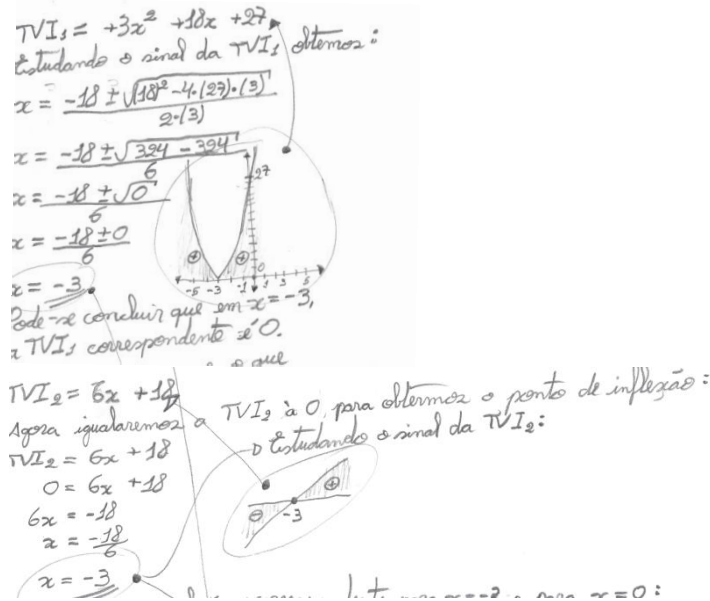 TVI₁ = +3x² +18x +27
Estudando o sinal da TVI₁ obtemos:
x = -18 ± √(18)² -4·(27)·(3)
2·(3)
x = -18 ± √324 - 324
6
x = -18 ± √0
6
x = -18 ± 0
6
x = -3
27
0
-5 -3 -1 1 3 5
⊕ ⊕
Pode-se concluir que em x = -3,
a TVI₁ correspondente é 0.
o que
TVI₂ = 6x + 18
Agora igualaremos a TVI₂ à 0, para obtermos o ponto de inflexão:
Estudando o sinal da TVI₂:
TVI₂ = 6x + 18
0 = 6x + 18
6x = -18
x = -18
6
x = -3
⊖ -3 ⊕
para x = 0: